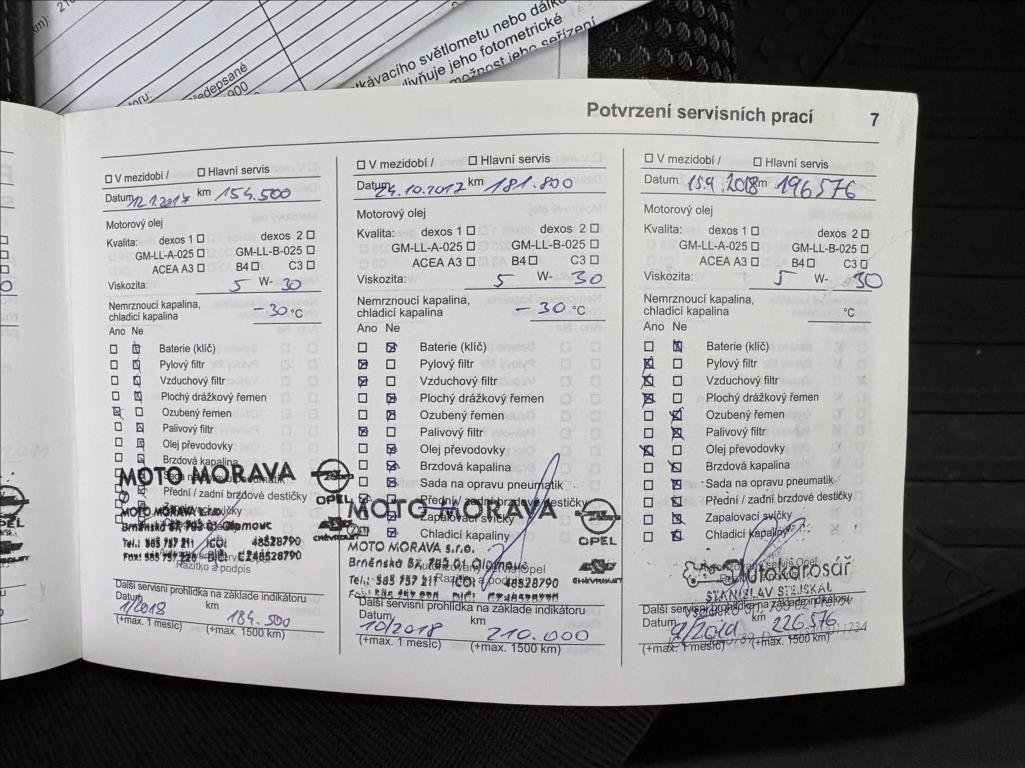 kávacího světlometu nebo dálko
livňuje jeho fotometrické
možnost jeho seřízení
edepsané
Potvrzení servisních prací 7
V mezidobí / Hlavní servis
Datum 12.1.2017 km 154.500
Motorový olej
Kvalita: dexos 1 dexos 2
GM-LL-A-025 GM-LL-B-025
ACEA A3 B4 C3
Viskozita: 5 W- 30
Nemrznoucí kapalina,
chladicí kapalina -30 °C
Ano Ne
Baterie (klíč)
Pylový filtr
Vzduchový filtr
Plochý drážkový řemen
Ozubený řemen
Palivový filtr
Olej převodovky
Brzdová kapalina
Sada na opravu pneumatik
Přední / zadní brzdové destičky
MOTO MORAVA
OPEL
MOTO MORAVA s.r.o.
Brněnská 57, 783 01 Olomouc
Tel.: 585 757 211 IČO: 48528790
Fax: 585 757 220 DIČ: CZ48528790
CHEVROLET
Razítko a podpis
Další servisní prohlídka na základě indikátoru
Datum 1/2018 km 184.500
(+max. 1 měsíc) (+max. 1500 km)
V mezidobí / Hlavní servis
Datum 24.10.2017 km 181.800
Motorový olej
Kvalita: dexos 1 dexos 2
GM-LL-A-025 GM-LL-B-025
ACEA A3 B4 C3
Viskozita: 5 W- 30
Nemrznoucí kapalina,
chladicí kapalina -30 °C
Ano Ne
Baterie (klíč)
Pylový filtr
Vzduchový filtr
Plochý drážkový řemen
Ozubený řemen
Palivový filtr
Olej převodovky
Brzdová kapalina
Sada na opravu pneumatik
Přední / zadní brzdové destičky
Zapalovací svíčky
Chladicí kapaliny
MOTO MORAVA
OPEL
MOTO MORAVA s.r.o.
Brněnská 57, 783 01 Olomouc
Autorizovaný servis Opel
Razítko a podpis
Tel.: 585 757 211 IČO: 48528790
CHEVROLET
Další servisní prohlídka na základě indikátoru
Datum 10/2018 km 210.000
(+max. 1 měsíc) (+max. 1500 km)
V mezidobí / Hlavní servis
Datum 15.9.2018 km 196576
Motorový olej
Kvalita: dexos 1 dexos 2
GM-LL-A-025 GM-LL-B-025
ACEA A3 B4 C3
Viskozita: 5 W- 30
Nemrznoucí kapalina,
chladicí kapalina °C
Ano Ne
Baterie (klíč)
Pylový filtr
Vzduchový filtr
Plochý drážkový řemen
Ozubený řemen
Palivový filtr
Olej převodovky
Brzdová kapalina
Sada na opravu pneumatik
Přední / zadní brzdové destičky
Zapalovací svíčky
Chladicí kapaliny
Autokarosář
STANISLAV STEJSKAL
Další servisní prohlídka na základě indikátoru
Datum km 226576
(+max. 1 měsíc) (+max. 1500 km)